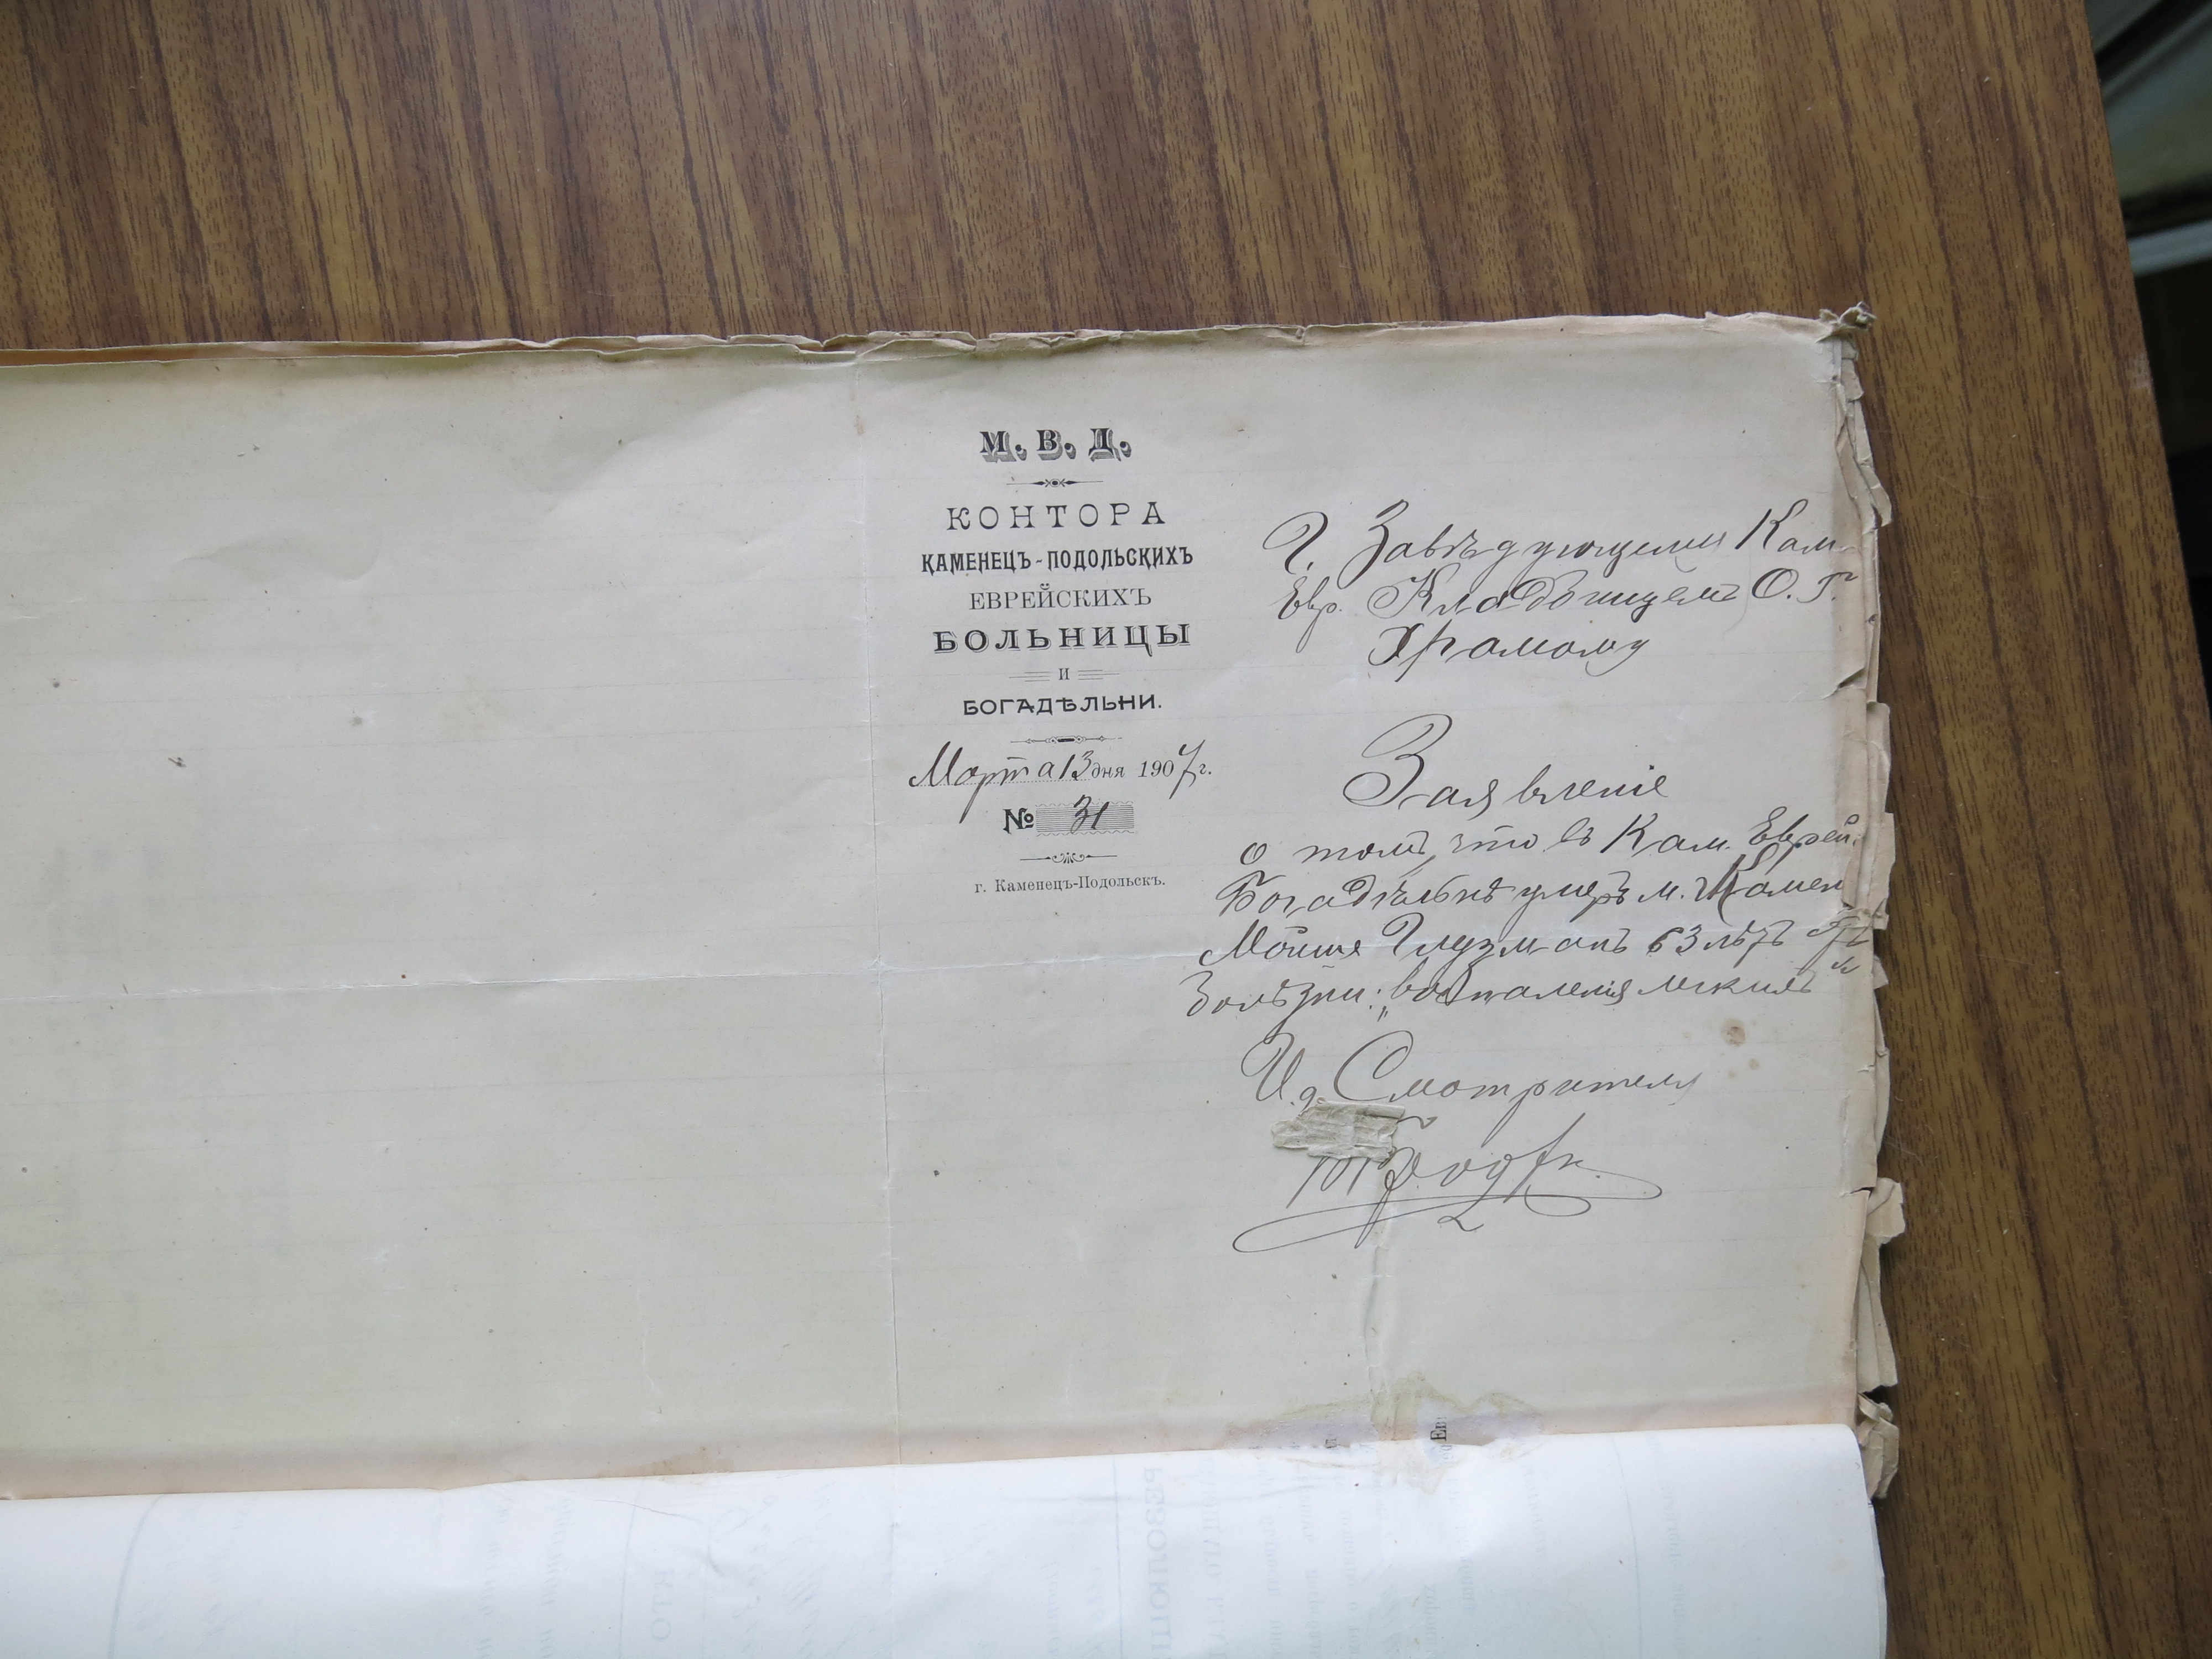 М. В. Д.
КОНТОРА
КАМЕНЕЦЪ-ПОДОЛЬСКИХЪ
ЕВРЕЙСКИХЪ
БОЛЬНИЦЫ
И
БОГАДѢЛЬНИ.
Марта 13 дня 1907 г.
№ 31
г. Каменецъ-Подольскъ.
Г. Завѣдующему Кам.
Евр. Кладбищемъ О. Г.
Хромому
Заявленіе
о томъ, что въ Кам. Еврей.
Богадѣльнѣ умеръ м. г. Камен
Мойше Глузманъ 63 лѣтъ отъ
болѣзни: „воспаленія легкихъ“
И. д. Смотрителя
Ев